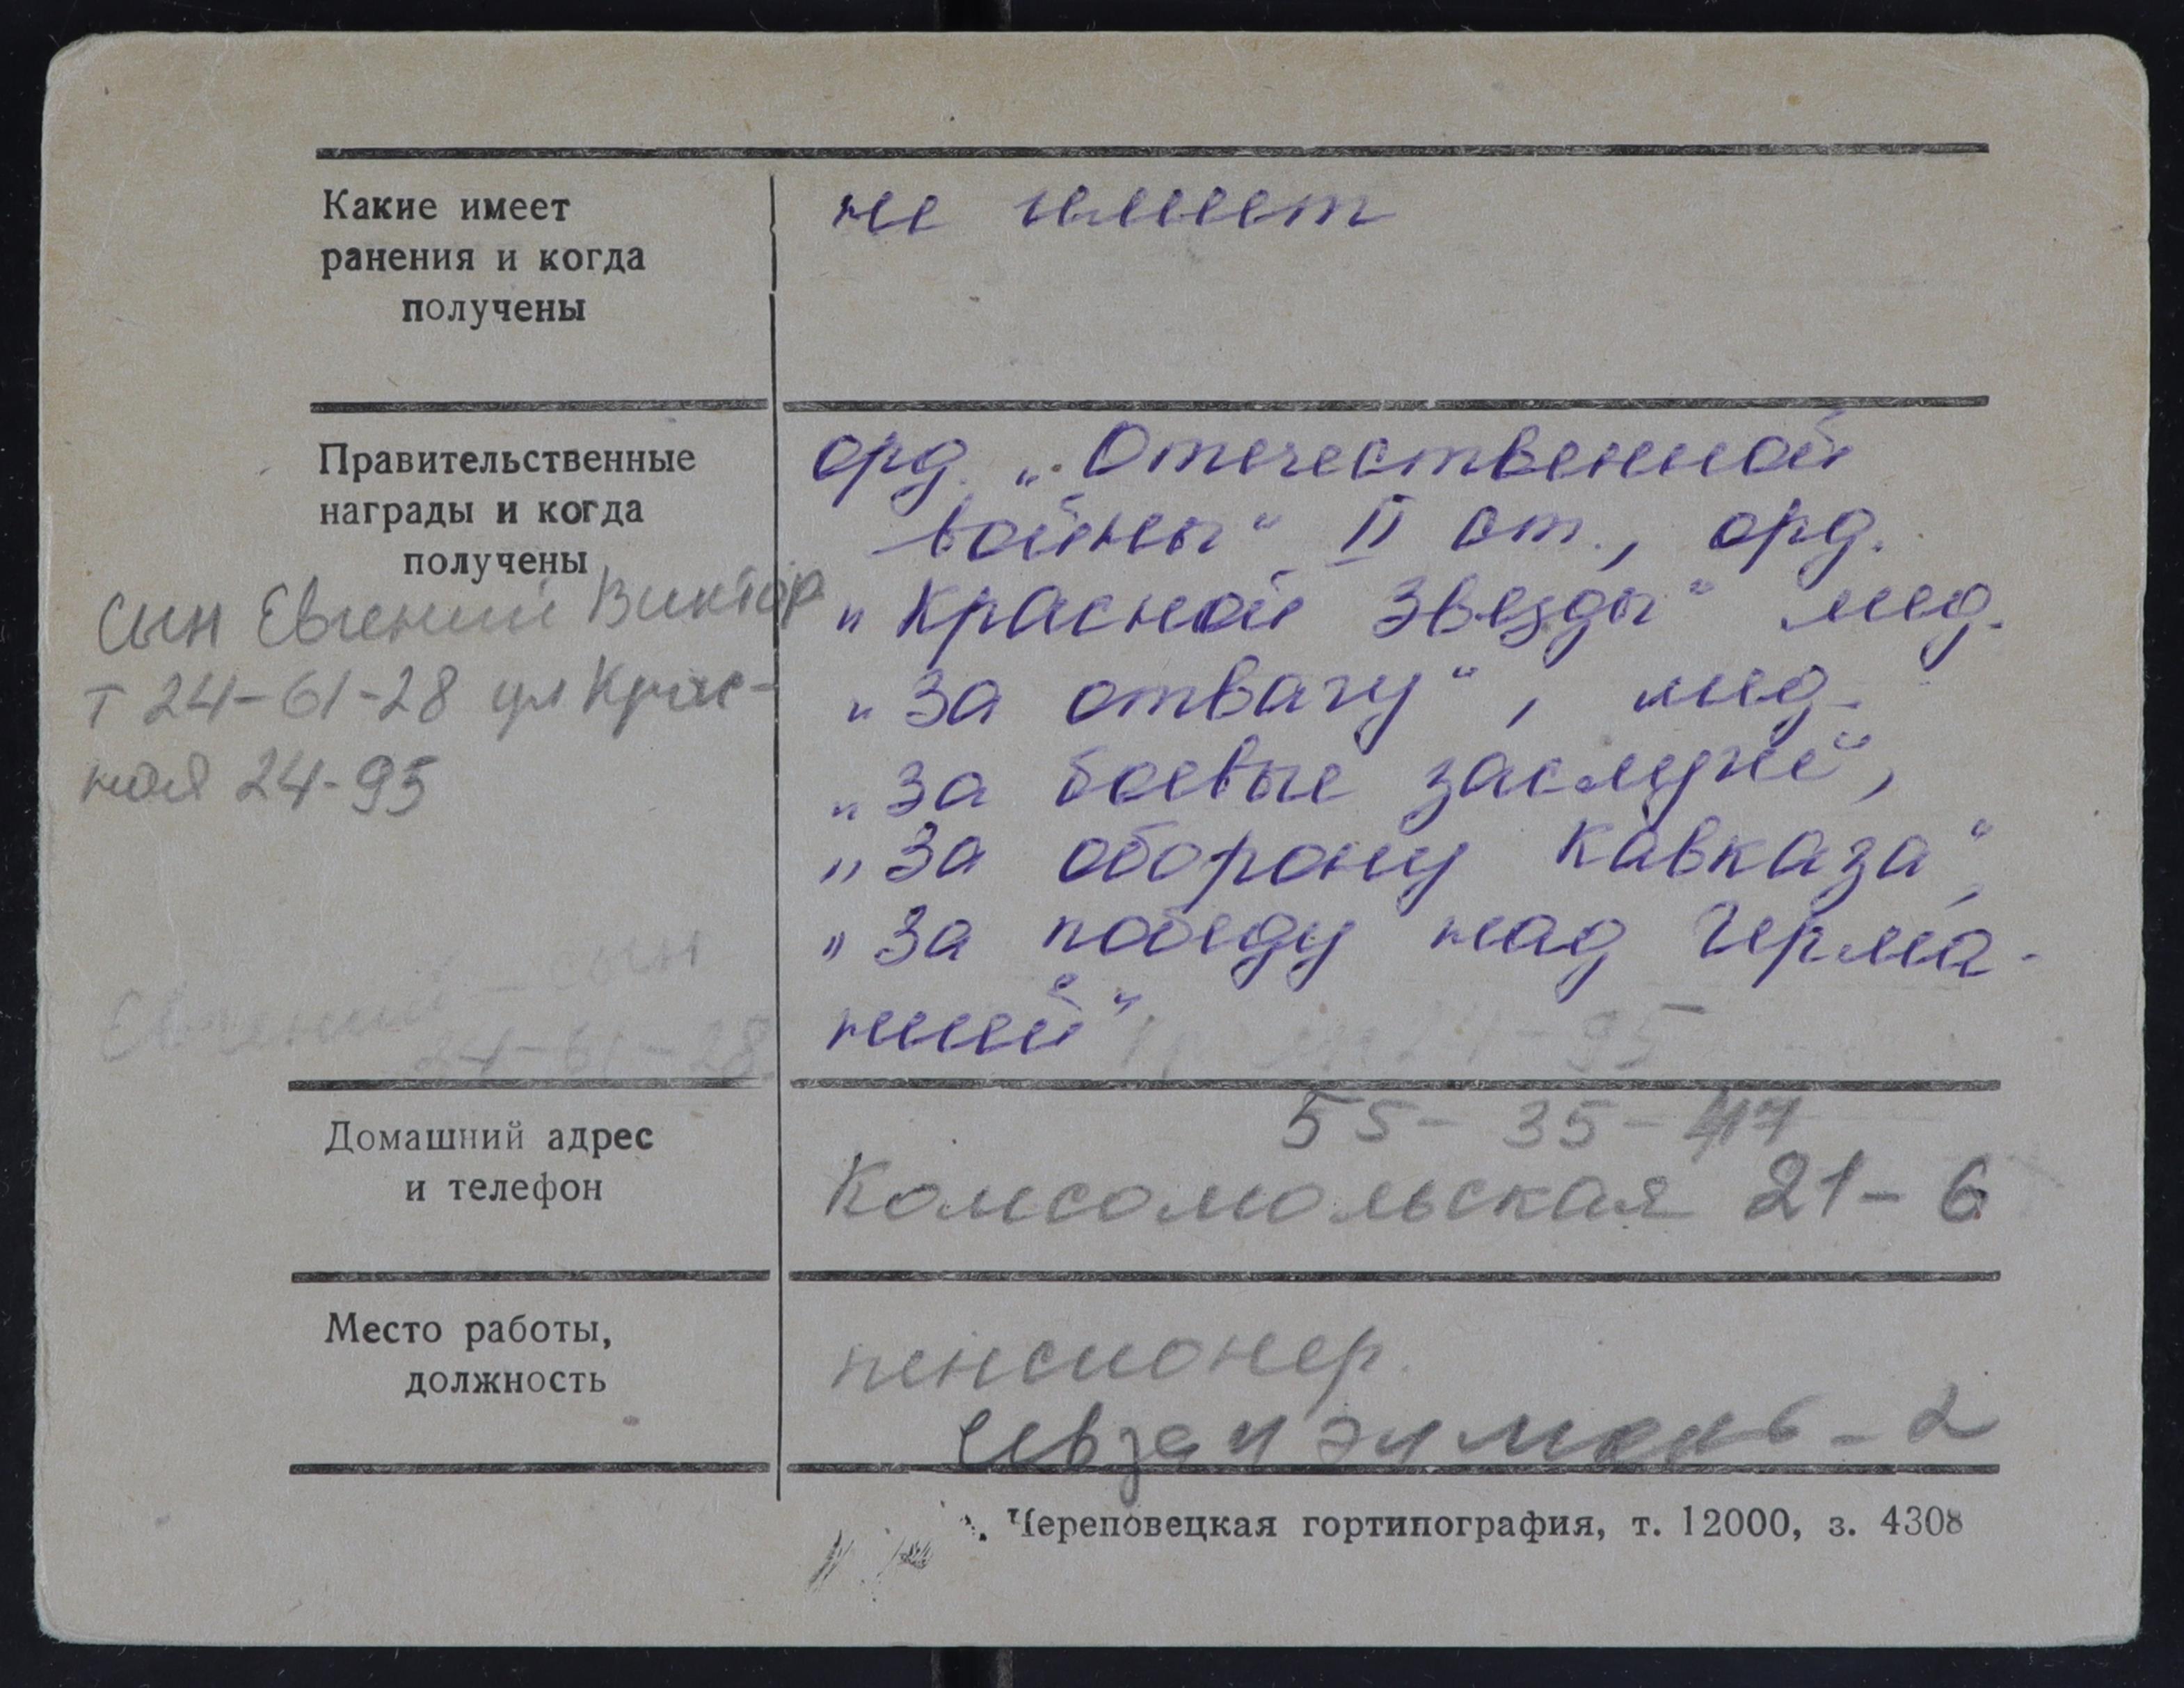 Какие имеет
ранения и когда
получены
не имеет
Правительственные
награды и когда
получены
орд. „Отечественной
войны“ II ст., орд.
„Красной Звезды“ мед.
„За отвагу“, мед.
„За боевые заслуги“,
„За оборону Кавказа“,
„За победу над Герма-
нией“
сын Евгений Виктор
т 24-61-28 ул Крас-
ная 24-95
Евгений - сын
24-61-28
Домашний адрес
и телефон
55-35-47
Комсомольская 21-6
Место работы,
должность
пенсионер.
Череповецкая гортипография, т. 12000, з. 4308